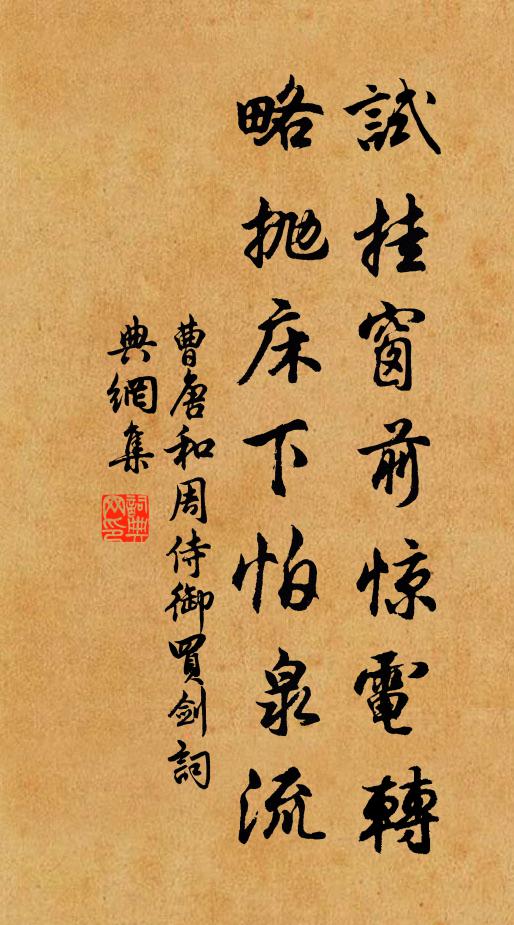 試挂窗前惊電轉
略抛床下怕泉流
曹唐和周侍御買劍詞
典網集
詞典
网印